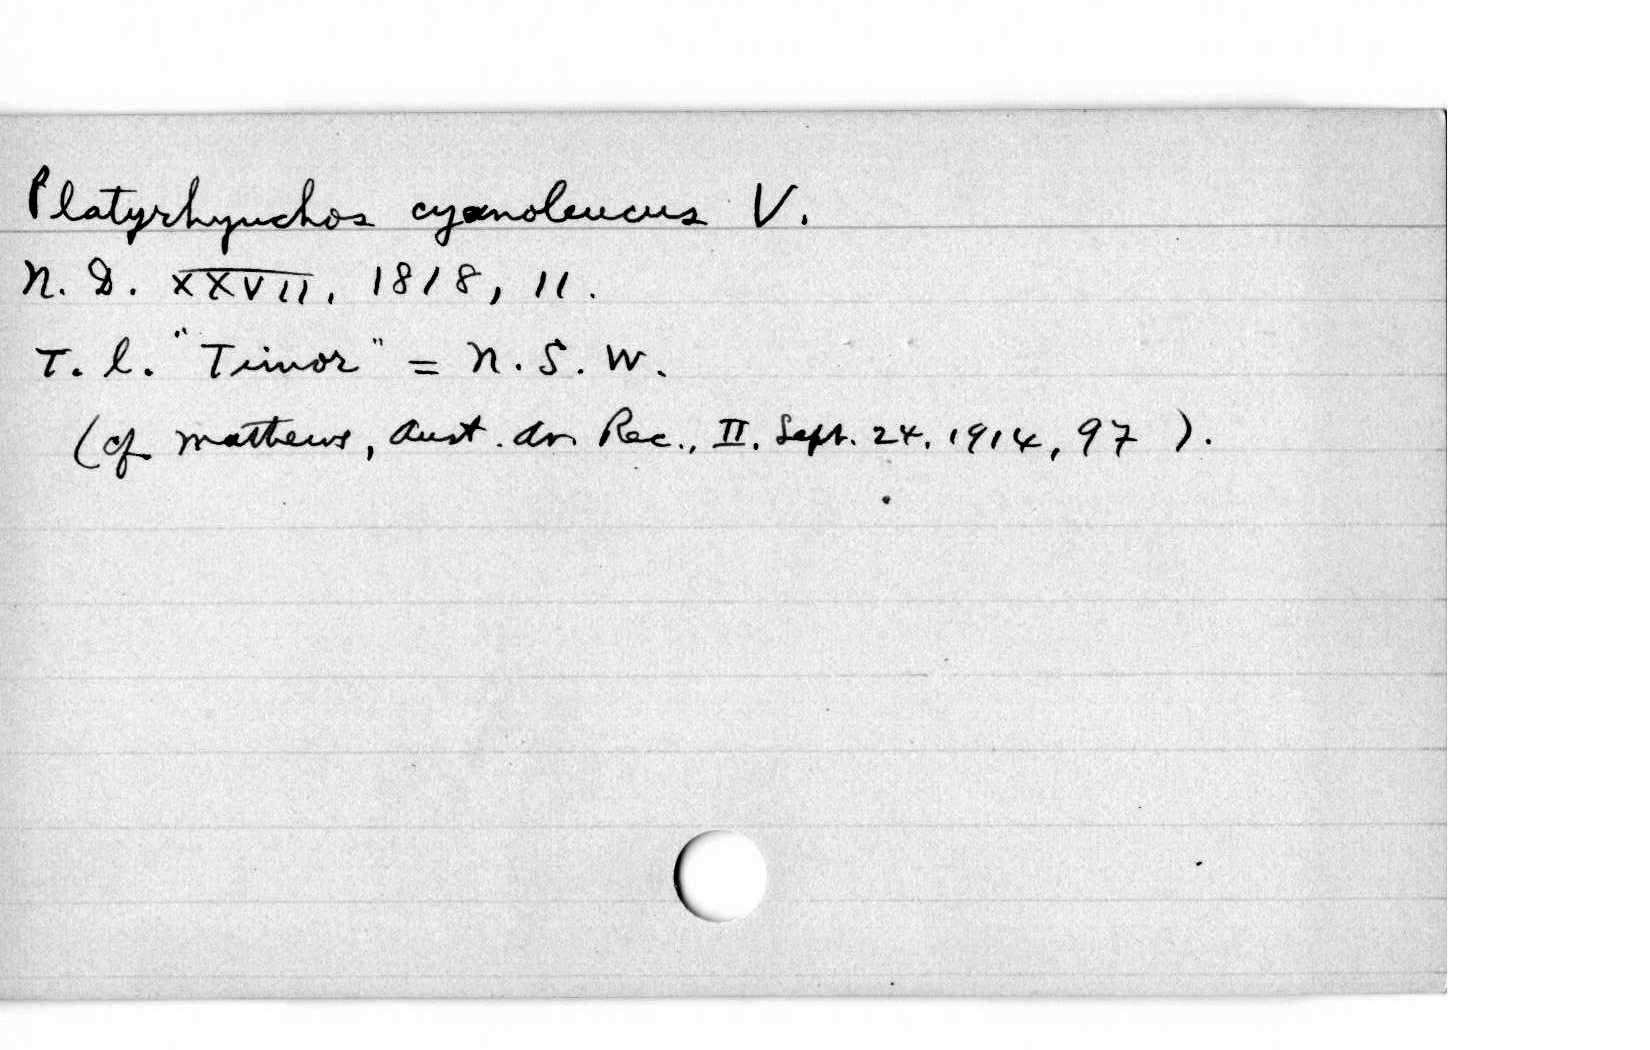 Platyrhynchos cyanoleucus V.
N. D. XXVII, 1818, 11.
T. l. "Timor" = N. S. W.
(cf. Mathews, Aust. Av Rec., II, Sept. 24, 1914, 97 ).